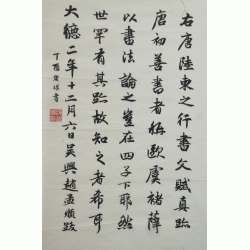 右唐陸東之行書文賦真跡
唐初善書者稱歐虞褚薛
以書法論之豈在四子下耶然
世罕有其跡故知之者希耳
大德二年十二月六日吴興趙孟頫跋
丁酉
書